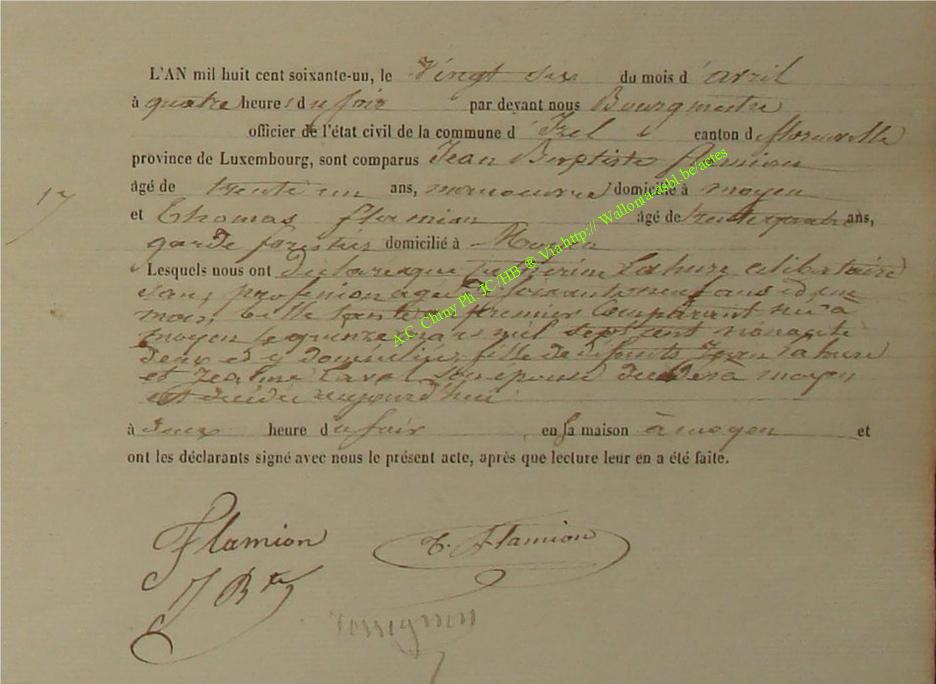 L'AN mil huit cent soixante-un, le Vingt six du mois d'avril
à quatre heures du soir par devant nous Bourgmestre
officier de l'état civil de la commune d'Izel canton de florenville
province de Luxembourg, sont comparus Jean Baptiste flamion
âgé de trente un ans, manoeuvre domicilié à moyen
17
et Thomas flamion âgé de trente quatre ans,
garde forestier domicilié à Moyen
Lesquels nous ont déclaré que Lahure célibataire
sans profession âgée de soixante neuf ans et un
mois, tante premier comparant née à
moyen le quinze mars mil sept cent nonante
deux et y domiciliée, fille de défunts Jean Lahure
et Jeanne son épouse à moyen
est décédée aujourd'hui
à deux heure du soir, en sa maison à moyen et
ont les déclarants signé avec nous le présent acte, après que lecture leur en a été faite.
Flamion
T. Flamion
J Bte
A.C. Chiny Ph. JC/HB ® Via http:// Wallonia-asbl.be/actes